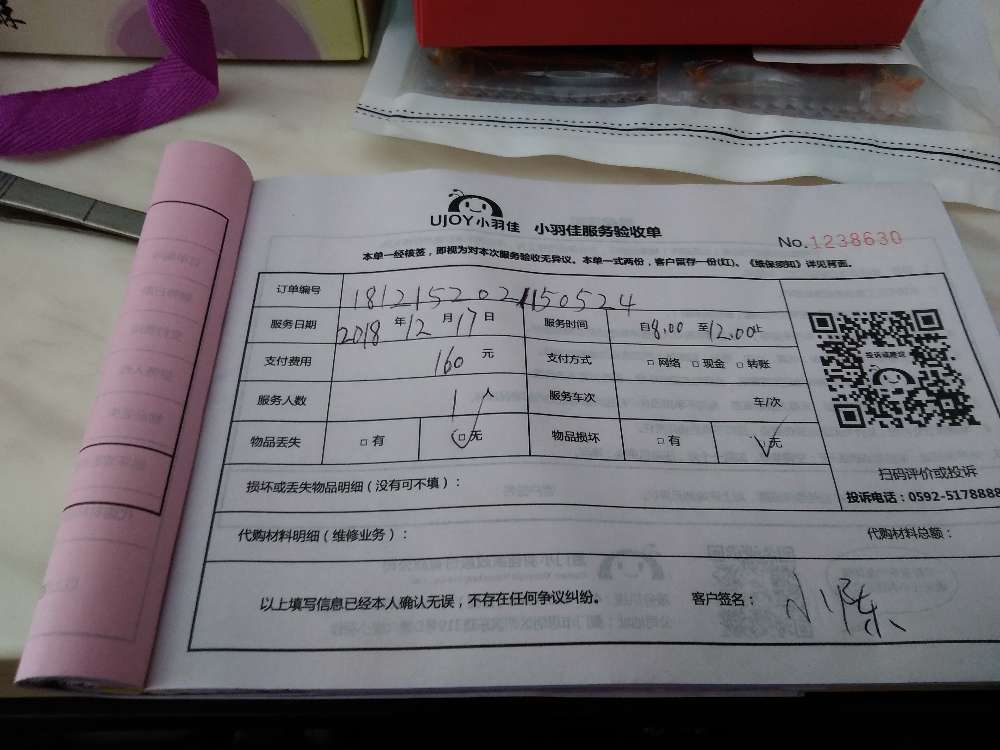 UJOY小羽佳 小羽佳服务验收单
No.1238630
本单一经核签，即视为对本次服务验收无异议。本单一式两份，客户留存一份(红)。《维保须知》详见背面。
订单编号 1812152021150524
服务日期 2018年12月17日 服务时间 自8.00至12.00止
支付费用 160元 支付方式 □网络 □现金 □转账
服务人数 1人 服务车次 车/次
物品丢失 □有 □无 物品损坏 □有 □无
投诉或建议
扫码评价或投诉
投诉电话：0592-5178888
损坏或丢失物品明细（没有可不填）：
代购材料明细（维修业务）： 代购材料总额：
以上填写信息已经本人确认无误，不存在任何争议纠纷。 客户签名：小陈